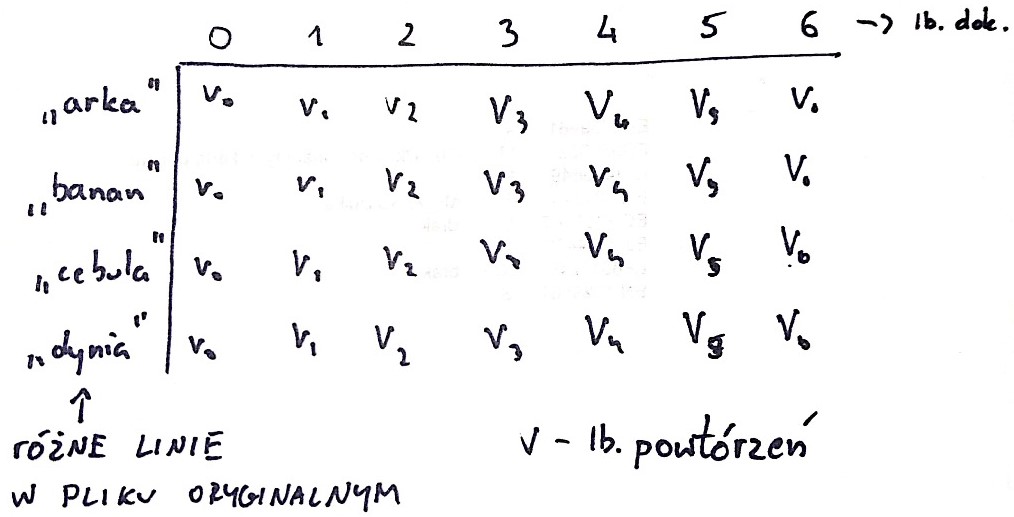 0 1 2 3 4 5 6 -> lb. dok.
„arka" v₀ v₁ v₂ v₃ v₄ v₅ v₀
„banan" v₀ v₁ v₂ v₃ v₄ v₅ v₀
„cebula" v₀ v₁ v₂ v₂ v₄ v₅ v₆
„dynia" v₀ v₁ v₂ v₃ v₄ v₅ v₆
↑
RÓŻNE LINIE
W PLIKU ORYGINALNYM
v - lb. powtórzeń